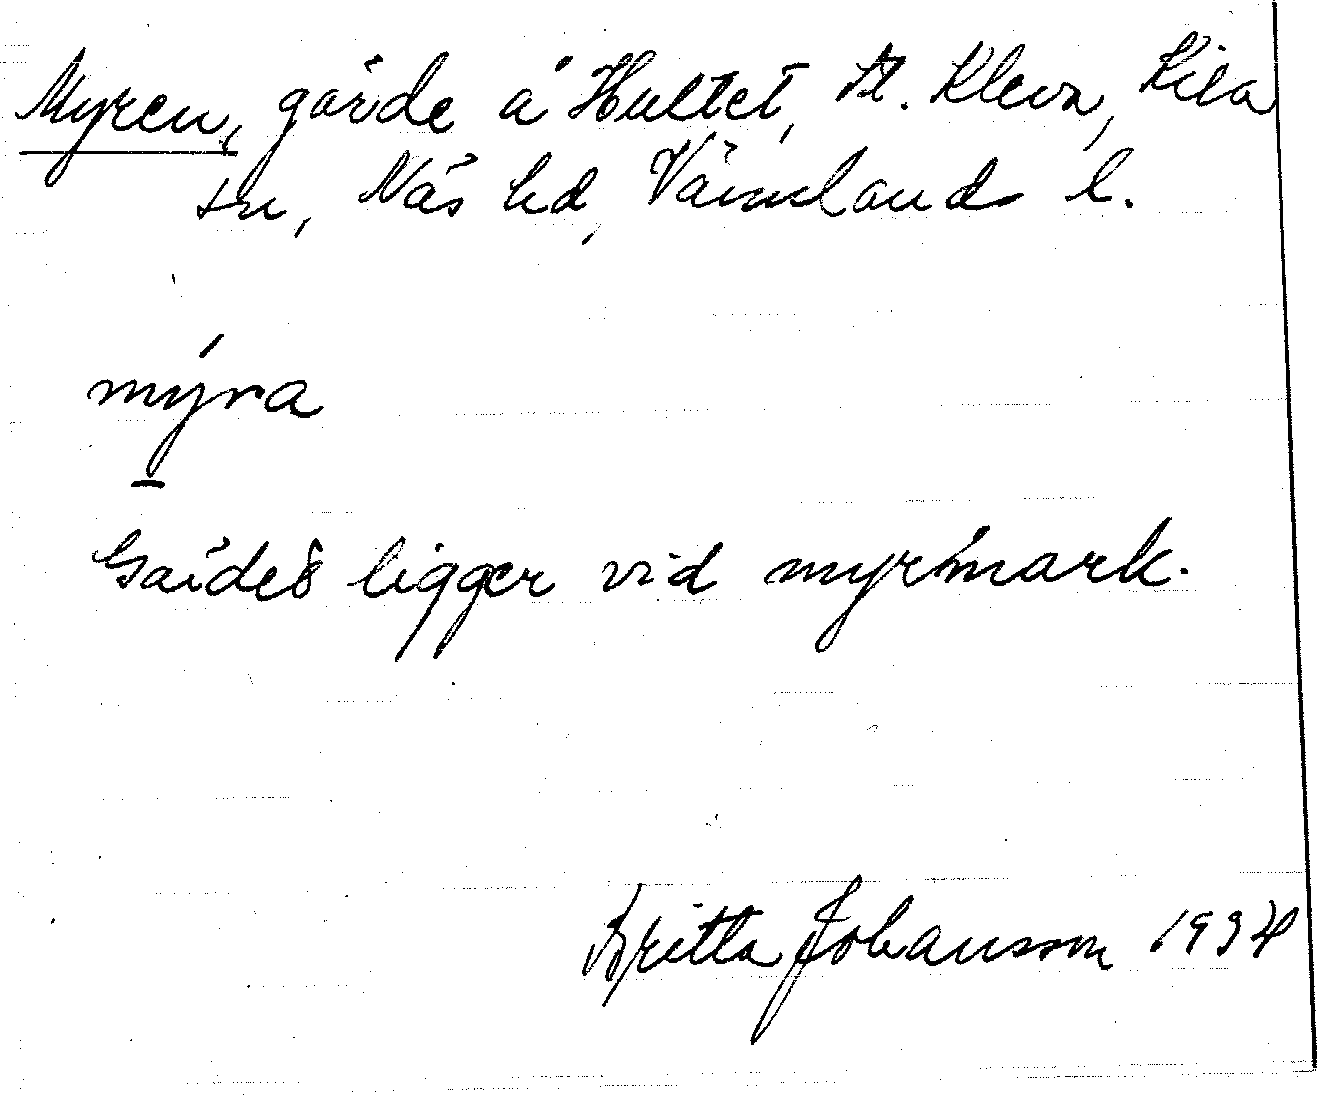 Myren, gärde å Hultet, St. Kleva, Kila
sn, Näs hd, Värmlands l.
mýra
Gärdet ligger vid myrmark.
Britta Johansson 1934